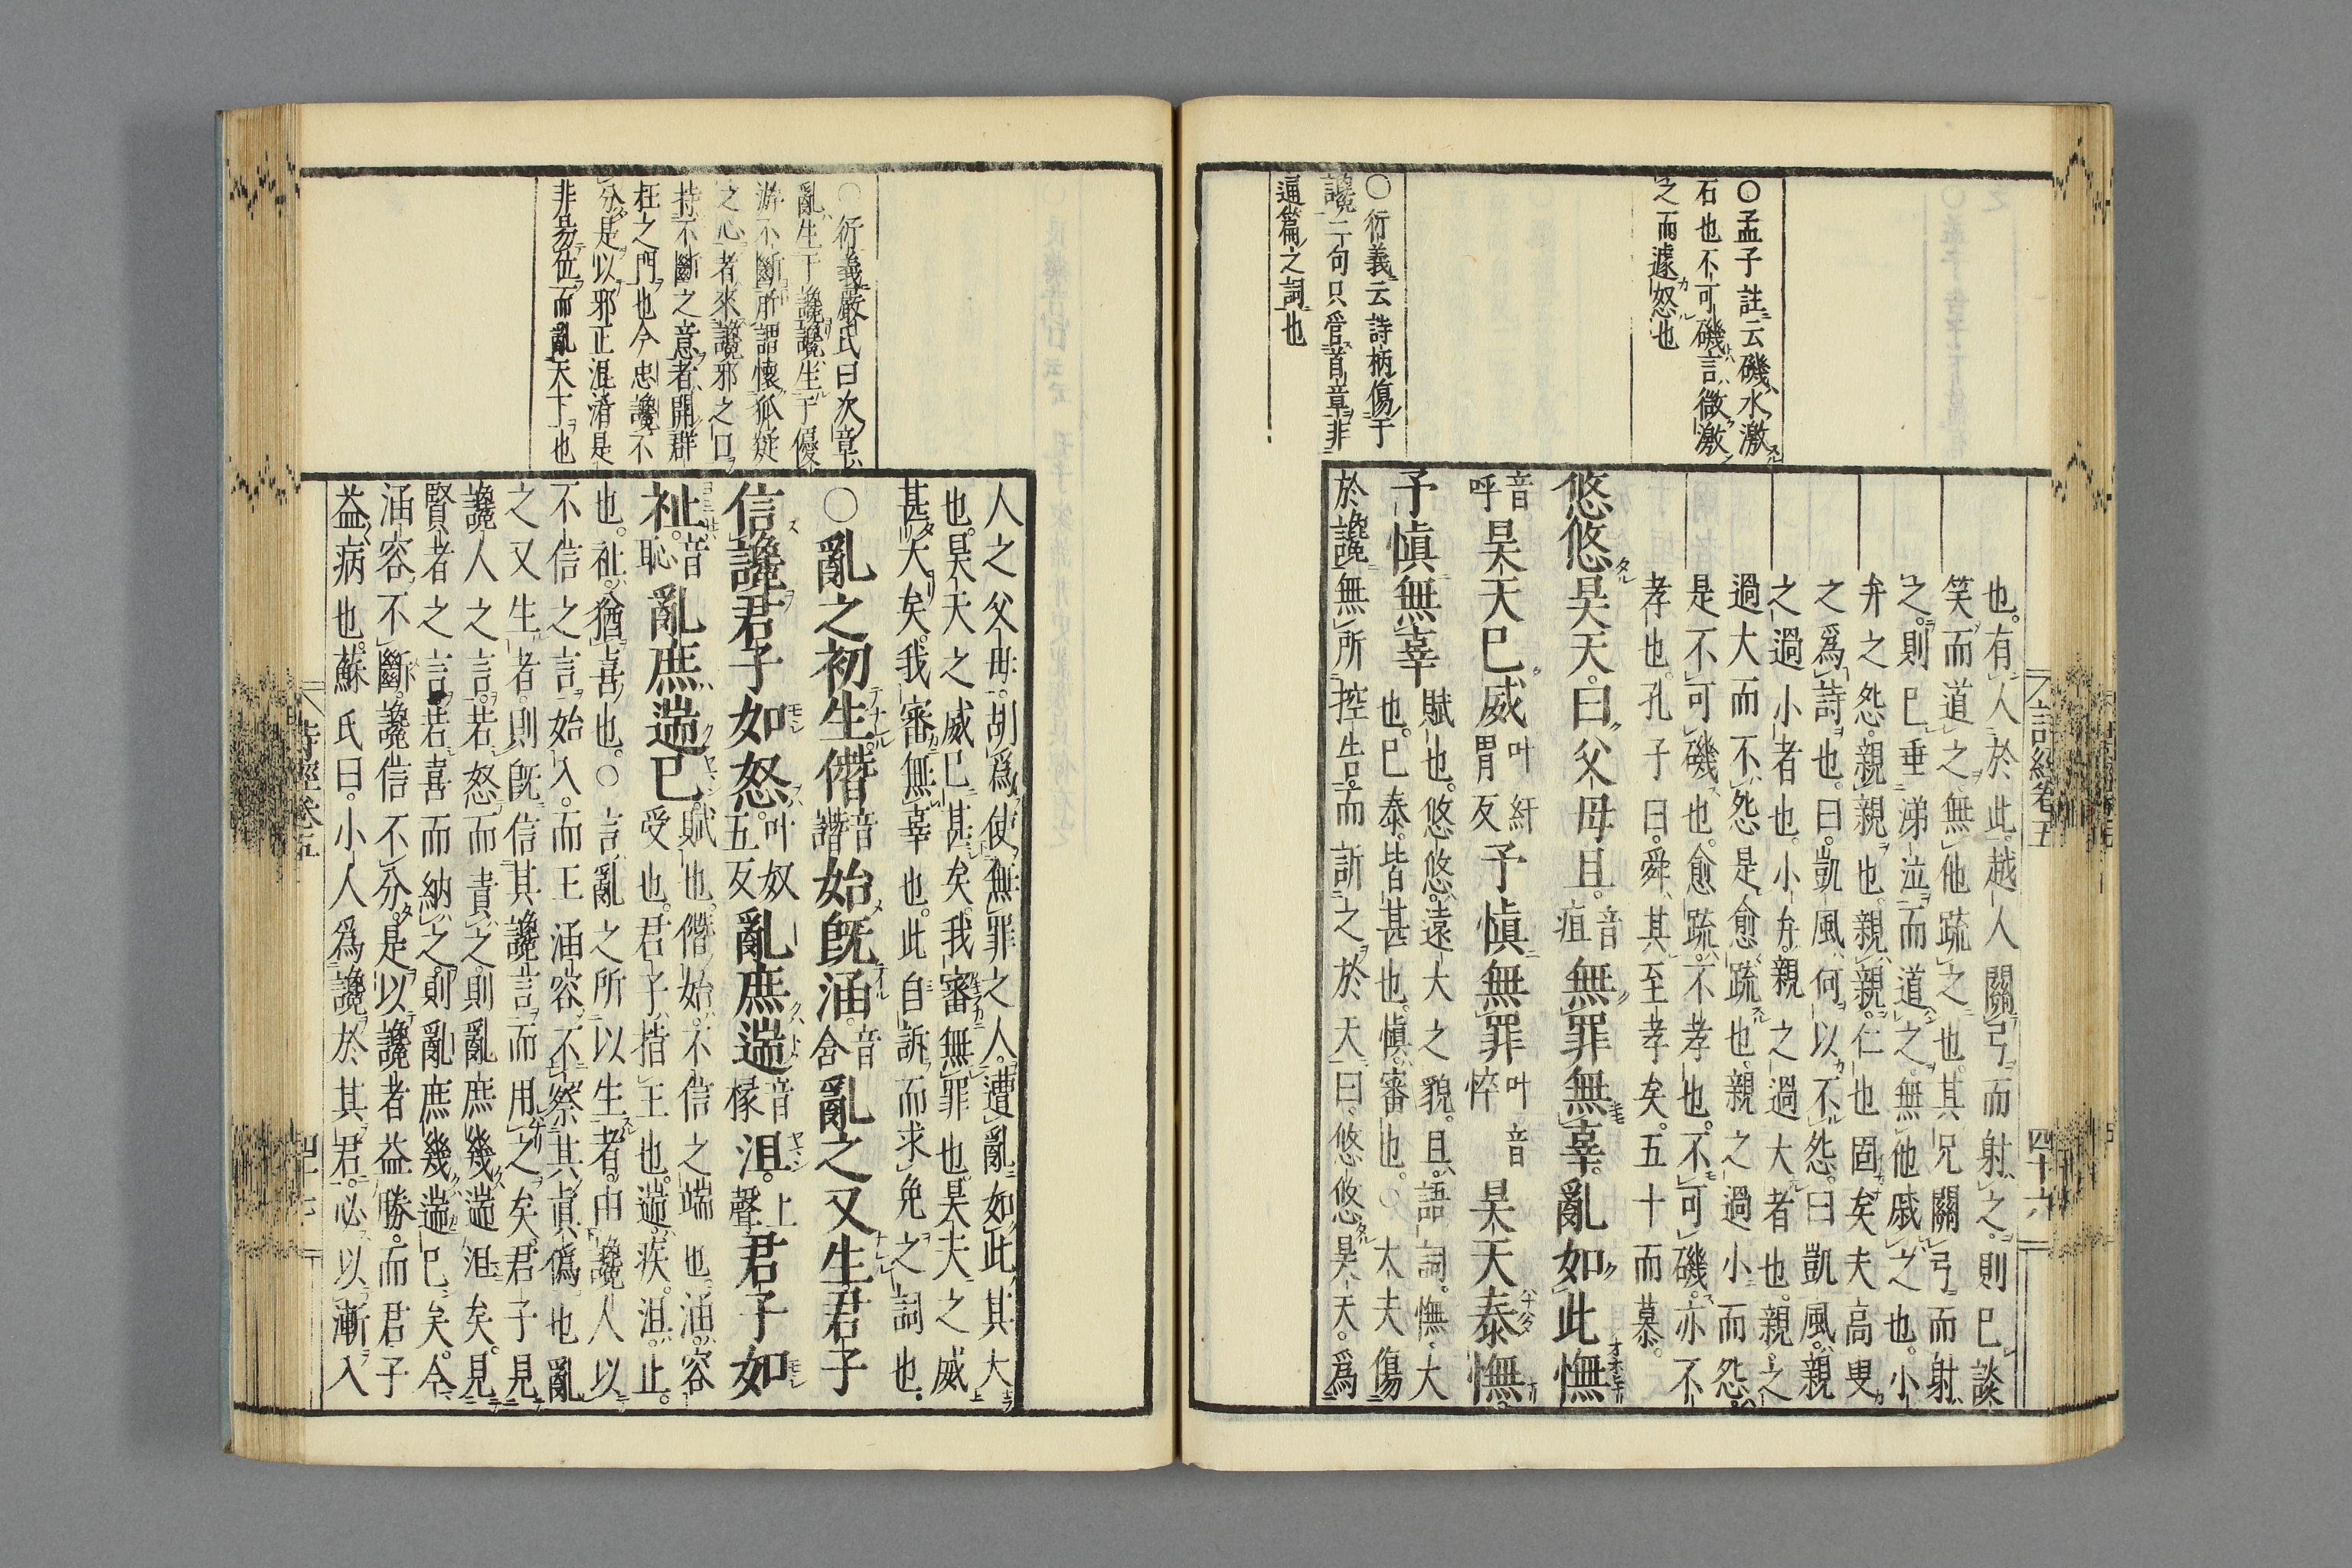 ○孟子註云磯水激
石也不可磯言微激
之而遽怒也
○衍義云詩柄傷于
讒二句只管首章非
逼篇之詞也
詩經卷五
四十六
也。有人於此。越人關弓而射之。則已談
笑而道之。無他。疏之也。其兄關弓而射
之。則已垂涕泣而道之。無他。戚之也。小
弁之怨。親親也。親親。仁也。固矣夫高叟
之爲詩也。曰。凱風何以不怨。曰。凱風。親
之過小者也。小弁。親之過大者也。親之
過大而不怨。是愈疏也。親之過小而怨。
是不可磯也。愈疏。不孝也。不可磯。亦不
孝也。孔子曰。舜其至孝矣。五十而慕。
悠悠昊天。曰父母且。音疽無罪無辜。亂如此憮
音呼昊天已威叶紆胃反予愼無罪叶音悴昊天泰憮
予愼無辜賦也。悠悠。遠大之貌。且。語詞。憮。大也。已。泰。皆甚也。愼。審也。○大夫傷
於讒無所控告。而訴之於天曰。悠悠昊天。爲
人之父母。胡爲使無罪之人。遭亂如此其大
也。昊天之威已甚矣。我審無罪也。昊天之威
甚大矣。我審無辜也。此自訴而求免之詞也。
○亂之初生僭音譖始既涵。音含亂之又生君子
信讒君子如怒。叶奴五反亂庶遄音椽沮。上聲君子如
祉。音恥亂庶遄已。賦也。僭始。不信之端也。涵。容受也。君子。指王也。遄。疾。沮。止
也。祉。猶喜也。○言亂之所以生者。由讒人以
不信之言始入。而王涵容不察其眞僞也亂
之又生者。則既信其讒言而用之矣。君子見
讒人之言。若怒而責之。則亂庶幾遄沮矣。見
賢者之言。若喜而納之。則亂庶幾遄已矣。今
涵容不斷。讒信不分。是以讒者益勝。而君子
益病也。蘇氏曰。小人爲讒於其君。必以漸入
○衍義嚴氏曰次章
亂生于讒讒生于優
游不斷所謂懷狐疑
之心者來讒邪之口
持不斷之意者開群
枉之門也今忠讒不
分是以邪正溷淆是
非易位而亂天下也
詩經卷五